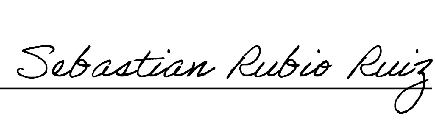 Sebastian Rubio Ruiz